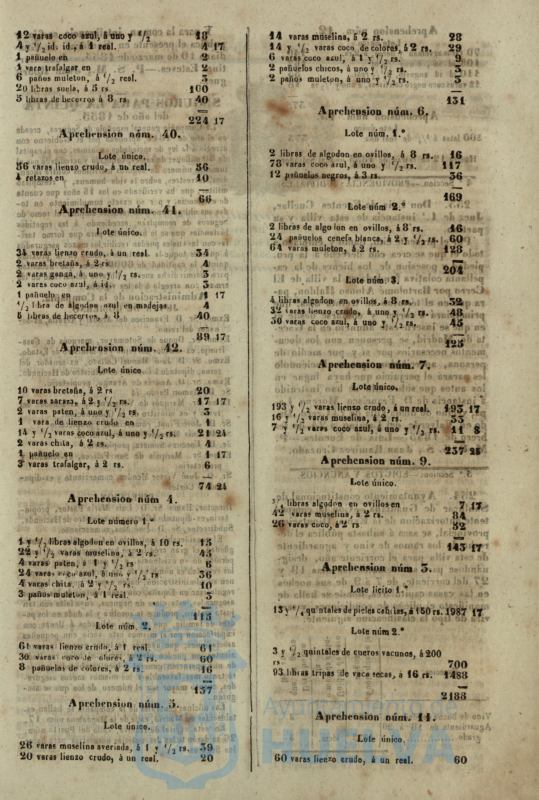 12 varas coco azul, á uno y 1/2 18
4 y 1/2 id. id., á 1 real. 4 17
1 pañuelo en 2
1 vara trafalgar en 2
6 paños muleton, á 1/2 real. 3
20 libras suela, á 5 rs. 100
5 libras de becerros á 8 rs. 40
224 17
Aprehension núm. 40.
Lote único.
56 varas lienzo crudo, á un real. 56
4 retazos en 10
66
Aprehension núm. 41.
Lote único.
34 varas lienzo crudo, á un real. 34
2 varas bretaña, á 2 rs 4
2 varas ganga, á uno y 1/2 rs. 3
2 varas coco azul, á id. 3
1 pañuelo en 1 17
1/2 libra de algodon azul en madejas 4
5 libras de becerros, á 8 40
89 17
Aprehension núm. 42.
Lote único
10 varas bretaña, á 2 rs 20
7 varas zaraza, á 2 y 1/2 rs. 17 17
2 varas paten, á uno y 1/2 rs. 3
1 vara de lienzo crudo en 1
14 y 1/2 varas coco azul, á uno y 1/2 rs. 21 24
2 varas chita, á 2 rs. 4
1 pañuelo en 1 17
3 varas trafalgar, á 2 rs. 6
74 24
Aprehension núm 4.
Lote número 1.º
1 y 1/2 libras algodon en ovillos, á 10 rs. 15
22 y 1/2 varas muselina, á 2 rs. 45
4 varas paten, á 1 y 1/2 rs 6
24 varas coco azul, á uno y 1/2 rs 36
4 varas chita, á 2 y 1/2 rs. 10
3 paños muleton, á 1 real. 3
115
Lote núm. 2.
61 varas lienzo crudo, á 1 real. 61
30 varas coco de colores, á 2 rs. 60
8 pañuelos de colores, á 2 rs. 16
137
Aprehension núm. 5.
Lote único.
26 varas muselina averiada, á 1 y 1/2 rs. 39
20 varas lienzo crudo, á un real. 20
14 varas muselina, á 2 rs. 28
14 y 1/2 varas coco de colores, á 2 rs. 29
6 varas coco azul, á 1 y 1/2 rs. 9
2 pañuelos chicos, á uno y 1/2 rs. 3
2 paños muleton, á uno y 1/2 rs. 3
131
Aprehension núm. 6.
Lote núm. 1.º
2 libras de algodon en ovillos, á 8 rs. 16
78 varas coco azul, á uno y 1/2 rs. 117
12 pañuelos negros, á 3 rs. 36
169
Lote núm 2.º
2 libras de algodon en ovillos, á 8 rs. 16
24 pañuelos cenefa blanca, á 2 y 1/2 rs. 60
64 varas muleton, á 2 rs. 128
204
Lote núm. 3.
4 libras algodon en ovillos, á 8 rs. 32
32 varas lienzo crudo, á uno y 1/2 rs. 48
30 varas coco azul, á uno y 1/2 rs. 45
125
Aprehension núm. 7.
Lote único.
193 y 1/2 varas lienzo crudo, á un real. 193 17
16 y 1/2 varas muselina, á 2 rs. 33
7 y 1/2 varas coco azul, á uno y 1/2 rs. 11 8
237 25
Aprehension núm. 9.
Lote único.
libras algodon en ovillos en 7 17
42 varas muselina, á 2 rs. 84
26 varas coco, á 2 rs 52
143 17
Aprehension núm 3.
Lote licito 1.º
13 y 1/4 quintales de pieles cabrías, á 150 rs. 1987 17
Lote núm 2.º
3 y 1/2 quintales de cueros vacunos, á 200
rs. 700
93 libras tripas de vaca secas, á 16 rs. 1488
2188
Aprehension núm. 11.
Lote único.
60 varas lienzo crudo, á un real. 60
Ayuntamiento
HUELVA